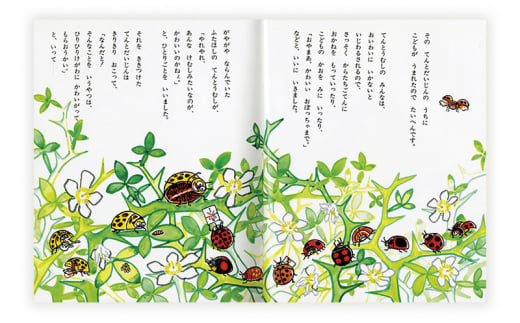 その てんとだいじんの うちに
こどもが うまれたので たいへんです。
てんとうむしの みんなは、
おいわいに いかないと
いじわるされるので、
さっそく からたちごてんに
おかねを もっていったり、
こどもの かおを みに いったり、
「おやまあ、かわいい おぼっちゃまで。」
などと、いいに いきました。
がやがや ならんでいた
ふたほしの てんとうむしが、
「やれやれ、
あんな けむしみたいなのが、
かわいいのかねえ。」
と、ひとりごとを いいました。
それを ききつけた
てんとだいじんは、
きりきり おこって、
「なんだと!
そんなことを いうやつは、
ひりひりけがわに かわいがって
もらおうかい。」
と、いって